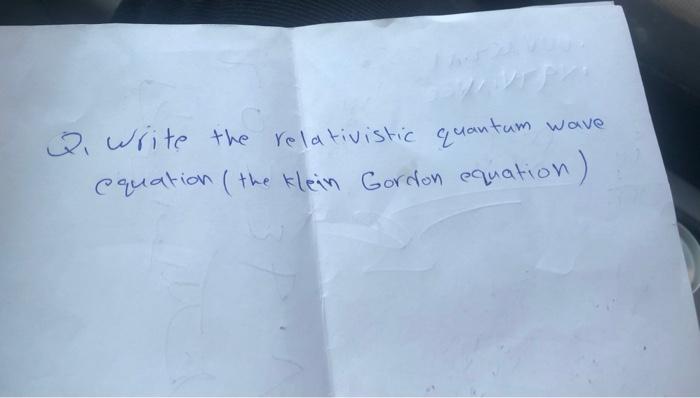 Q. Write the relativistic quantum wave
equation (the Klein Gordon equation)